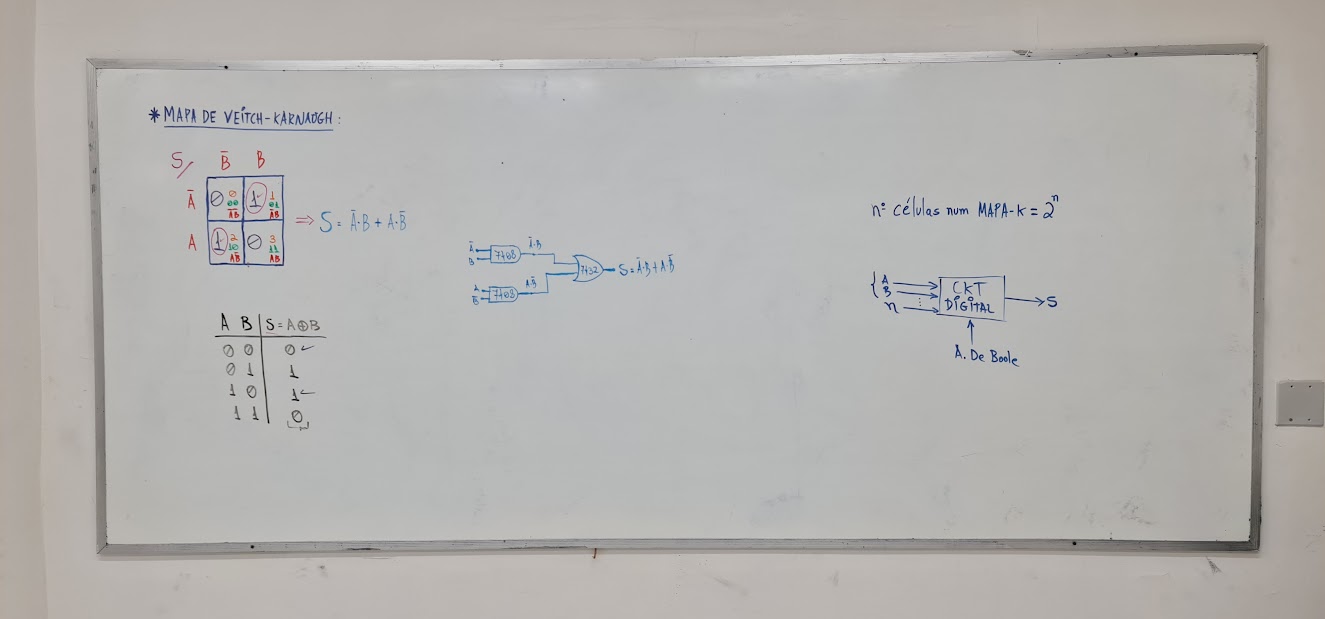 * MAPA DE VEITCH-KARNAUGH:
S/ B̅ B
A̅ 0 0 1 1
00 01
A̅B̅ A̅B
A 1 2 0 3
10 11
AB̅ AB
⇒ S = A̅·B + A·B̅
A B S = A⊕B
0 0 0
0 1 1
1 0 1
1 1 0
A̅
B
7408
A̅·B
A
B̅
7408
A·B̅
7432
S = A̅·B + A·B̅
nº células num MAPA-K = 2ⁿ
{ A
B
⋮
n
CKT
DIGITAL
S
A. De Boole